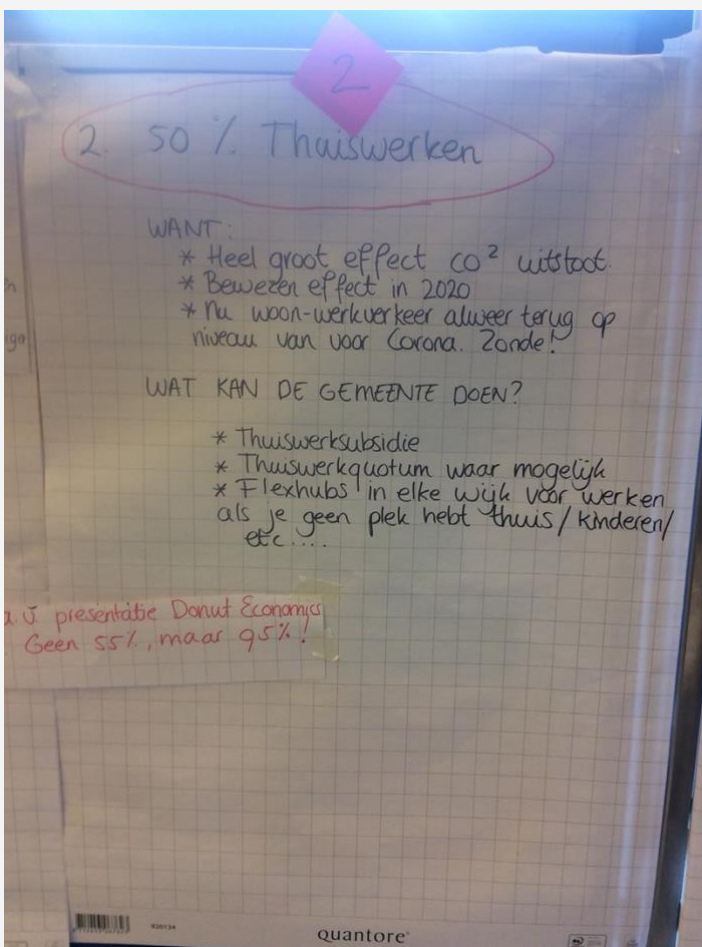 2
2. 50 % Thuiswerken
WANT:
* Heel groot effect CO² uitstoot.
* Bewezen effect in 2020
* Nu woon-werkverkeer alweer terug op
niveau van voor Corona. Zonde!
WAT KAN DE GEMEENTE DOEN?
* Thuiswerksubsidie
* Thuiswerkquotum waar mogelijk
* Flexhubs in elke wijk voor werken
als je geen plek hebt thuis/kinderen/
etc....
presentatie Donut Economics
Geen 55%, maar 95%!
920134
quantore